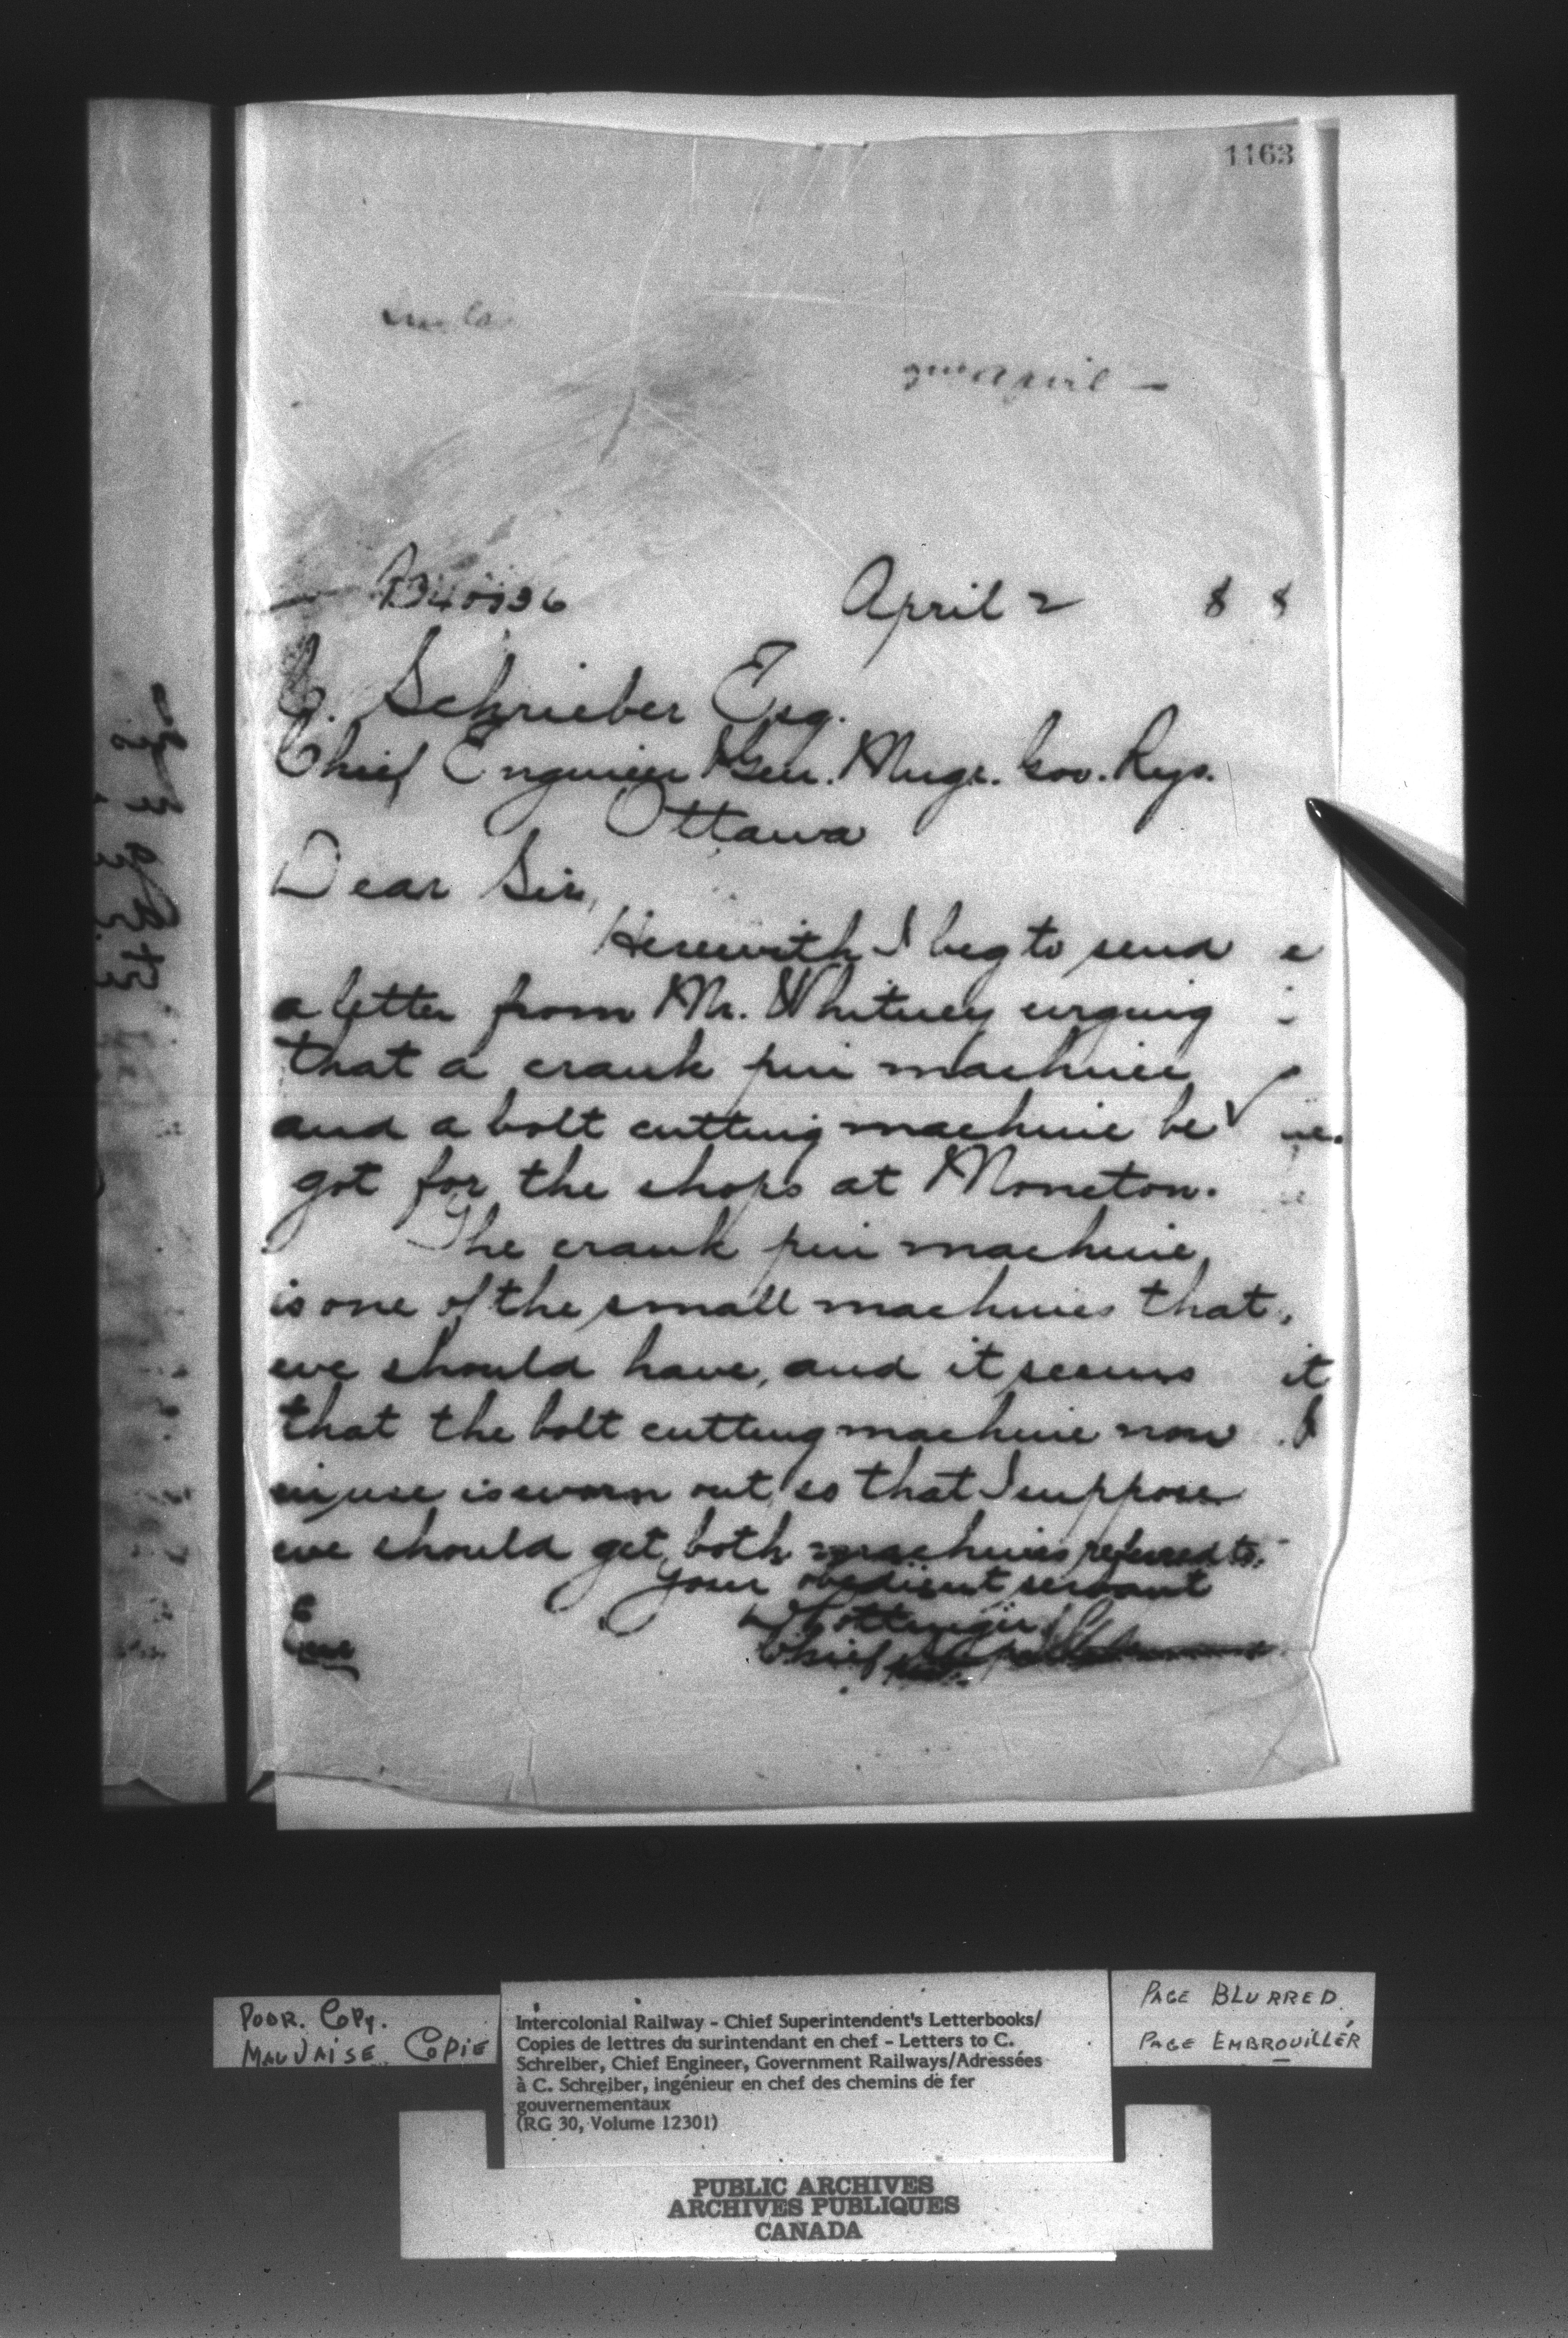 1163
April
April 2 88
C. Schrieber Esq.
Chief Engineer & Gen. Mngr. Gov. Rys.
Ottawa
Dear Sir,
Herewith I beg to send
a letter from Mr. Whitney urging
that a crank pin machine
and a bolt cutting machine be
got for the shops at Moncton.
The crank pin machine,
is one of the small machines that,
we should have, and it seems
that the bolt cutting machine now
in use is worn out, so that I suppose
we should get both machines referred to.
Your obedient servant
D Pottinger
Chief
POOR. COPY.
MAUVAISE COPIE
Intercolonial Railway - Chief Superintendent's Letterbooks/
Copies de lettres du surintendant en chef - Letters to C.
Schreiber, Chief Engineer, Government Railways/Adressées
à C. Schreiber, ingénieur en chef des chemins de fer
gouvernementaux
(RG 30, Volume 12301)
PAGE BLURRED.
PAGE EMBROUILLÉR
PUBLIC ARCHIVES
ARCHIVES PUBLIQUES
CANADA